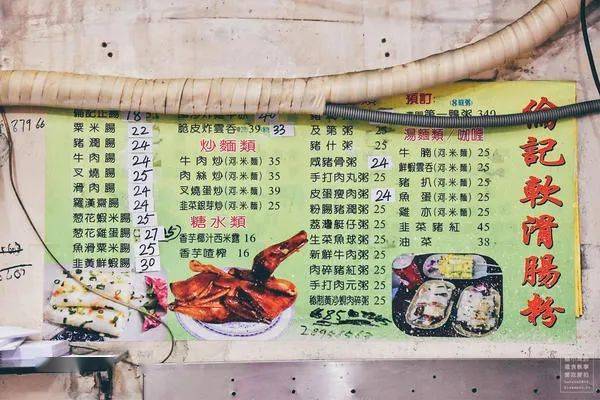 倫記軟滑腸粉
預訂
粟米腸 22
豬潤腸 24
牛肉腸 24
叉燒腸 25
滑肉腸 24
羅漢齋腸 24
葱花蝦米腸 25
葱花雞蛋腸 27
魚滑粟米腸 25
韭黃鮮蝦腸 30
脆皮炸雲吞 39 33
炒麵類
牛肉炒(河米麵) 35
肉絲炒(河米麵) 35
叉燒蛋炒(河米麵) 39
韭菜銀芽炒(河米麵) 25
糖水類
香芋椰汁西米露 16
香芋喳榨 16
及第粥 25
豬什粥 25
咸豬骨粥 24
手打肉丸粥 25
皮蛋瘦肉粥 24
粉腸豬潤粥 25
荔灣艇仔粥 25
生菜魚球粥 25
新鮮牛肉粥 25
肉碎豬紅粥 25
手打肉元粥 25
湯麵類/咖喱
牛腩(河米麵) 25
鮮蝦雲吞(河米麵) 25
豬扒(河米麵) 25
魚蛋(河米麵) 25
雞亦(河米麵) 25
韭菜豬紅 45
油菜 38